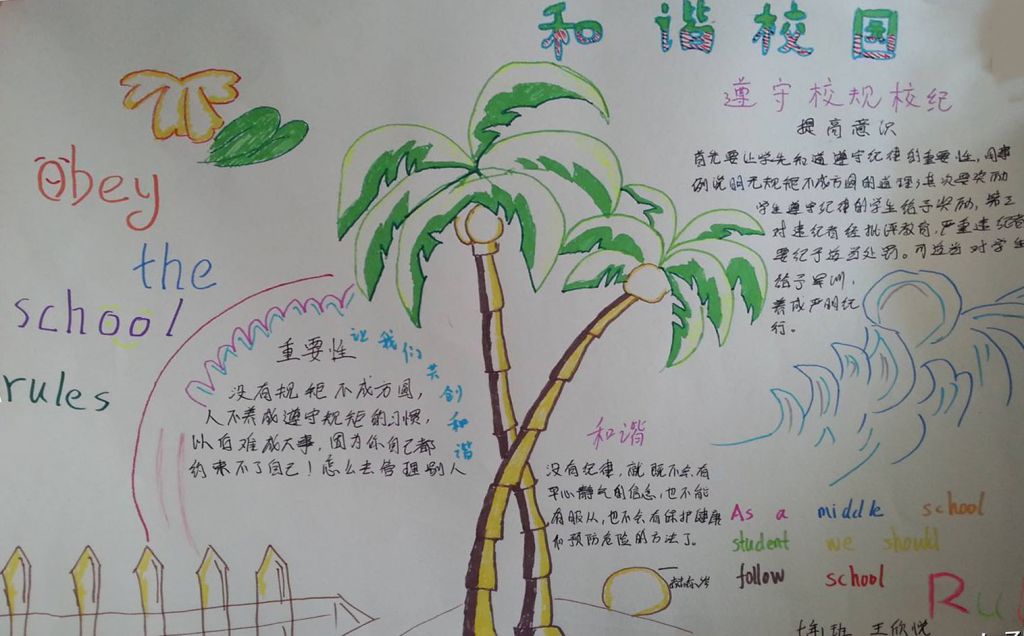 和谐校园
遵守校规校纪
提高意识
首先要让学生知道遵守纪律的重要性,用事
例说明无规矩不成方圆的道理;其次要奖励
学生遵守纪律的学生给予奖励,第三
对违纪者经批评教育,严重违纪者
要纪予适当处罚。可适当对学生
给予军训,
养成严明纪
行。
Obey
the
school
rules
重要性
让我们共创和谐
没有规矩不成方圆,
人不养成遵守规矩的习惯,
以后难成大事,因为你自己都
约束不了自己!怎么去管理别人
和谐
没有纪律,就既不会有
平心静气的信念,也不能
有服从,也不会有保护健康
和预防危险的方法了。
As a middle school
student we should
follow school
王欣悦